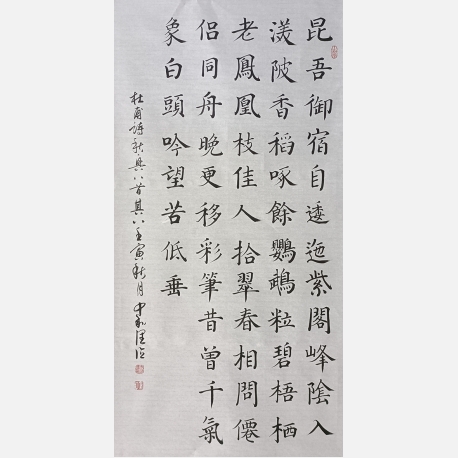 昆吾御宿自逶迤紫閣峰陰入
渼陂香稻啄餘鸚鵡粒碧梧栖
老鳳凰枝佳人拾翠春相問僊
侶同舟晚更移彩筆昔曾千氣
象白頭吟望苦低垂
杜甫詩秋興八首其八壬寅秋月